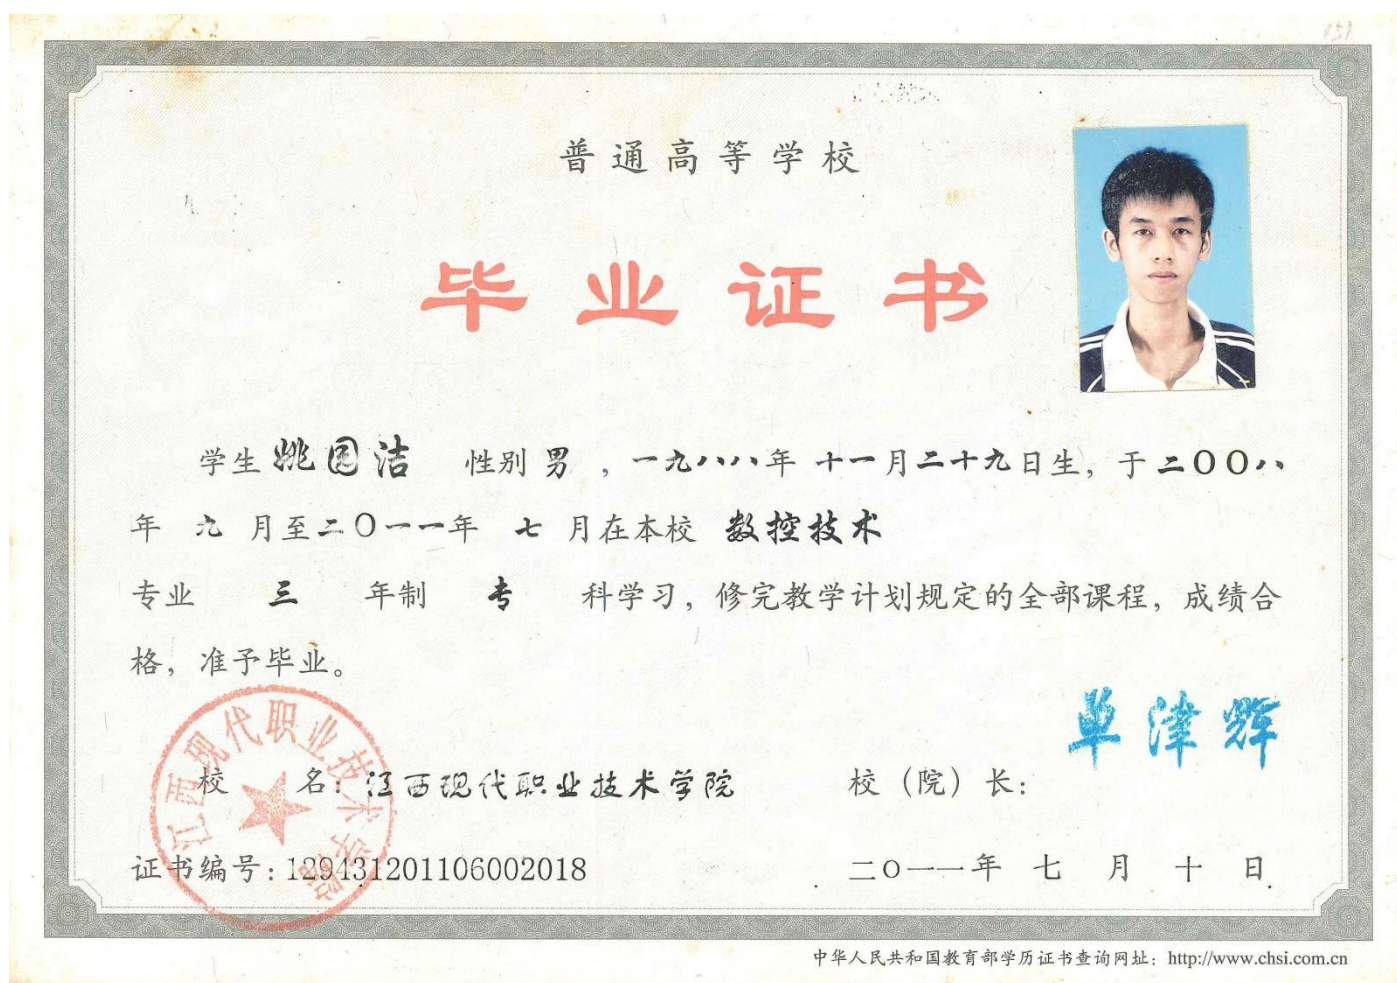 151
普通高等学校
毕业证书
学生 姚园洁 性别 男 , 一九八八年 十一月二十九日生, 于二〇〇八
年 九 月至二〇一一年 七 月在本校 数控技术
专业 三 年制 专 科学习, 修完教学计划规定的全部课程, 成绩合
格, 准予毕业。
单津辉
江西现代职业技术学院
校 名: 江西现代职业技术学院 校(院)长:
证书编号: 129431201106002018 二〇一一年 七 月 十 日
中华人民共和国教育部学历证书查询网址: http://www.chsi.com.cn